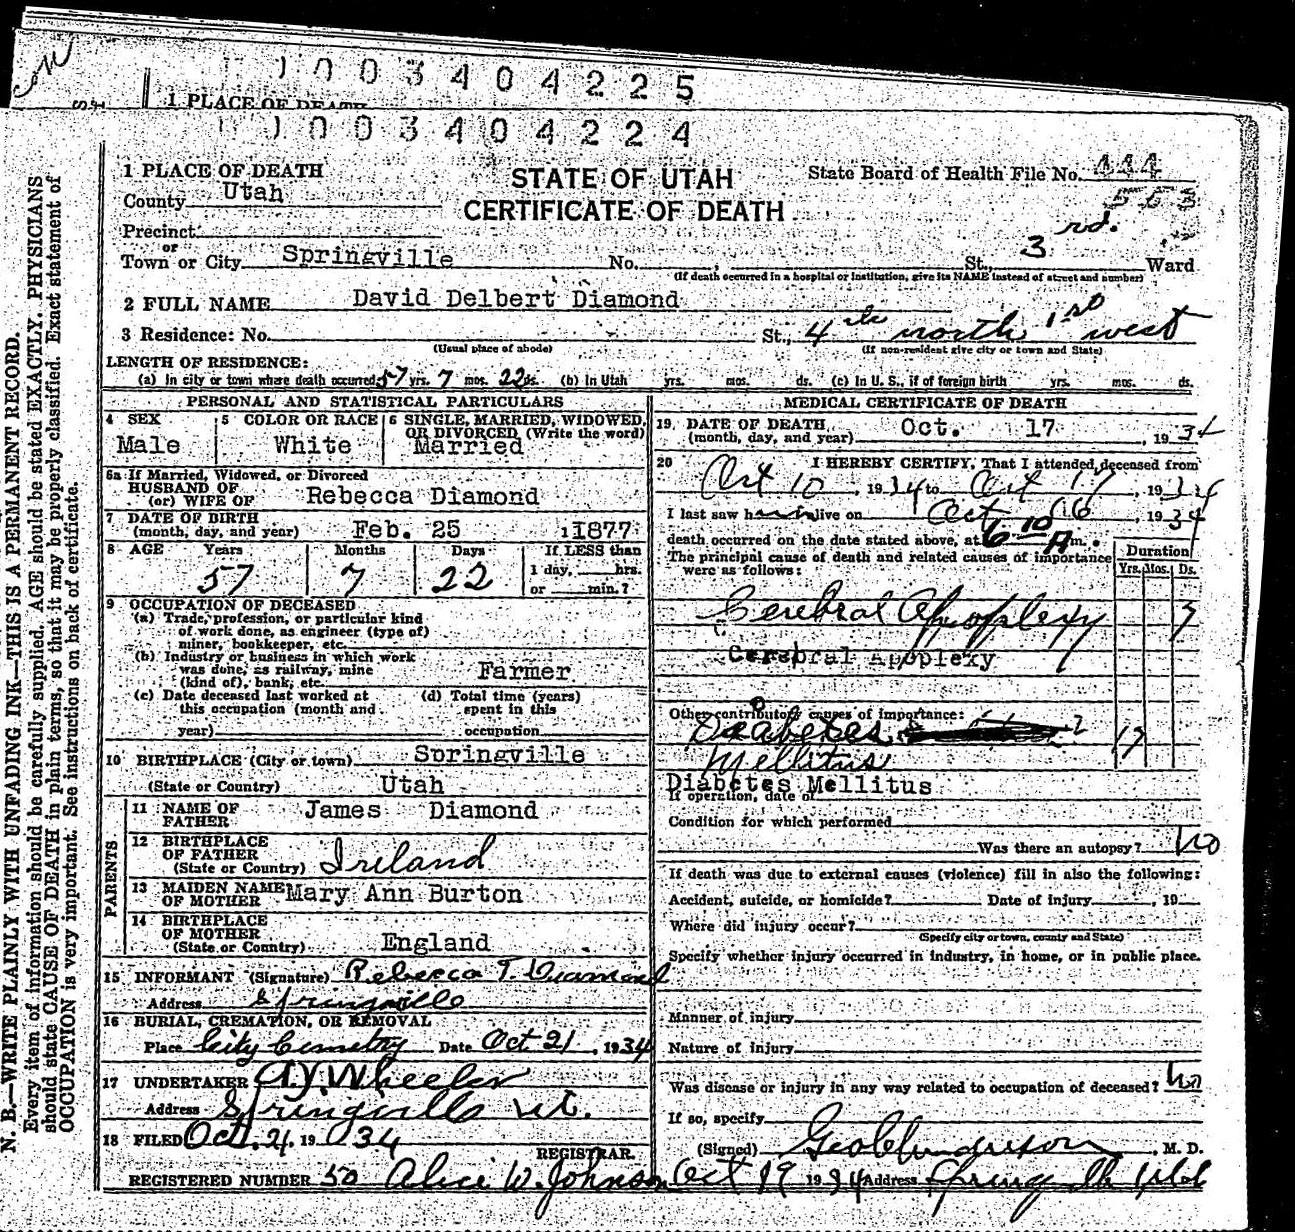 1003404225
1 PLACE OF DEATH
1003404224
1 PLACE OF DEATH
County Utah
STATE OF UTAH
CERTIFICATE OF DEATH
State Board of Health File No. 444
Precinct
or
Town or City Springville No. St., 3 rd. Ward
(If death occurred in a hospital or institution, give its NAME instead of street and number)
2 FULL NAME David Delbert Diamond
3 Residence: No. St., 4th north 1st west
(Usual place of abode) (If non-resident give city or town and State)
LENGTH OF RESIDENCE:
(a) In city or town where death occurred 57 yrs. 7 mos. 22 ds. (b) In Utah yrs. mos. ds. (c) In U. S., if of foreign birth yrs. mos. ds.
PERSONAL AND STATISTICAL PARTICULARS
4 SEX
Male
5 COLOR OR RACE
White
6 SINGLE, MARRIED, WIDOWED,
OR DIVORCED (Write the word)
Married
6a If Married, Widowed, or Divorced
HUSBAND OF
(or) WIFE OF Rebecca Diamond
7 DATE OF BIRTH
(month, day, and year) Feb. 25 11877
8 AGE Years Months Days If LESS than
57 7 22 1 day, hrs.
or min.?
9 OCCUPATION OF DECEASED
(a) Trade, profession, or particular kind
of work done, as engineer (type of)
miner, bookkeeper, etc.
(b) Industry or business in which work
was done, as railway, mine
(kind of), bank, etc. Farmer
(c) Date deceased last worked at
this occupation (month and
year)
(d) Total time (years)
spent in this
occupation
10 BIRTHPLACE (City or town) Springville
(State or Country) Utah
PARENTS
11 NAME OF
FATHER James Diamond
12 BIRTHPLACE
OF FATHER
(State or Country) Ireland
13 MAIDEN NAME
OF MOTHER Mary Ann Burton
14 BIRTHPLACE
OF MOTHER
(State or Country) England
15 INFORMANT (Signature) Rebecca T. Diamond
Address Springville
16 BURIAL, CREMATION, OR REMOVAL
Place City Cemetry Date Oct 21, 1934
17 UNDERTAKER A.Y. Wheeler
Address Springville Ut.
18 FILED Oct. 21, 19034
REGISTRAR.
REGISTERED NUMBER 50 Alice W. Johnson
MEDICAL CERTIFICATE OF DEATH
19. DATE OF DEATH
(month, day, and year) Oct. 17, 1934
20 I HEREBY CERTIFY, That I attended deceased from
Oct 10, 1934 to Oct 17, 1934
I last saw him alive on Oct 16, 1934
death occurred on the date stated above, at 6-10 A m.
The principal cause of death and related causes of importance
were as follows:
Duration
Yrs. Mos. Ds.
Cerebral Apoplexy 7
Cerebral Apoplexy
Other contributory causes of importance:
Diabetes
Mellitus
Diabetes Mellitus
If operation, date of
Condition for which performed
Was there an autopsy? no
If death was due to external causes (violence) fill in also the following:
Accident, suicide, or homicide? Date of injury , 19
Where did injury occur?
(Specify city or town, county and State)
Specify whether injury occurred in industry, in home, or in public place.
Manner of injury
Nature of injury
Was disease or injury in any way related to occupation of deceased? no
If so, specify
(Signed) Geo , M. D.
Oct 19 1934 Address Springville Utah
N. B.—WRITE PLAINLY WITH UNFADING INK—THIS IS A PERMANENT RECORD.
Every item of information should be carefully supplied. AGE should be stated EXACTLY. PHYSICIANS
should state CAUSE OF DEATH in plain terms, so that it may be properly classified. Exact statement of
OCCUPATION is very important. See instructions on back of certificate.